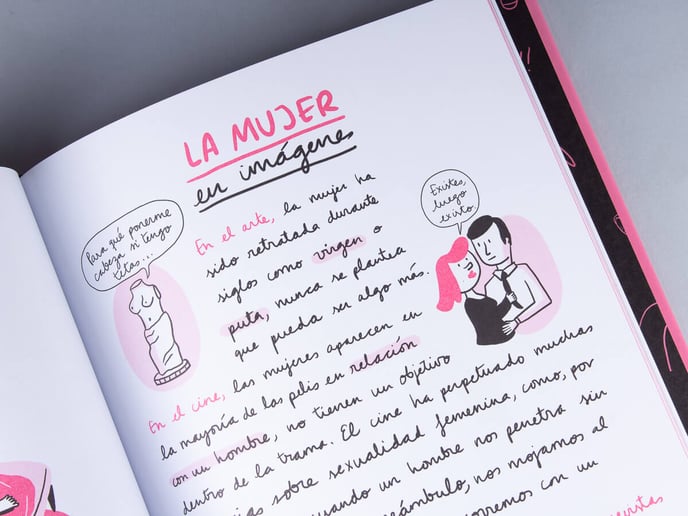 LA MUJER
en imágenes
Para qué ponerme
cabeza si tengo
tetas...
Existes,
luego
existo.
En el arte, la mujer ha
sido retratada durante
siglos como virgen o
puta, nunca se plantea
que pueda ser algo más.
En el cine, las mujeres aparecen en
la mayoría de las pelis en relación
con un hombre, no tienen un objetivo
dentro de la trama. El cine ha perpetuado muchas
sobre sexualidad femenina, como, por
cuando un hombre nos penetra sin
nos mojamos al
corremos con un
revistas